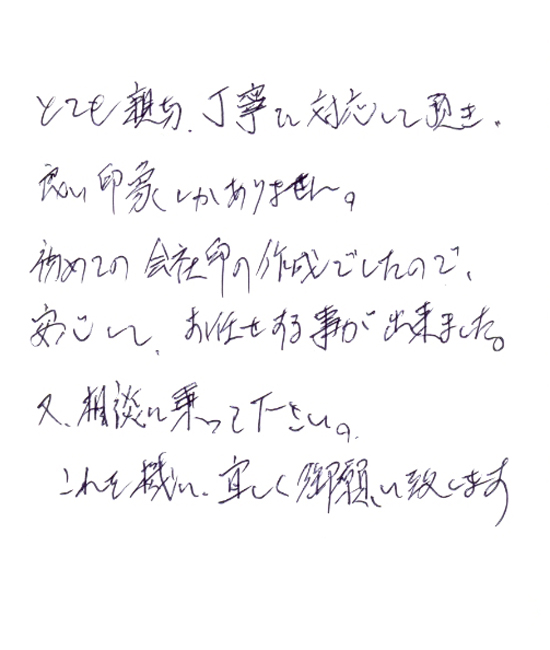 とても親切、丁寧に対応して頂き、
良い印象しかありません。
初めての会社印の作成でしたので、
安心して、お任せする事が出来ました。
又、相談に乗って下さい。
これを機に、宜しく御願い致します